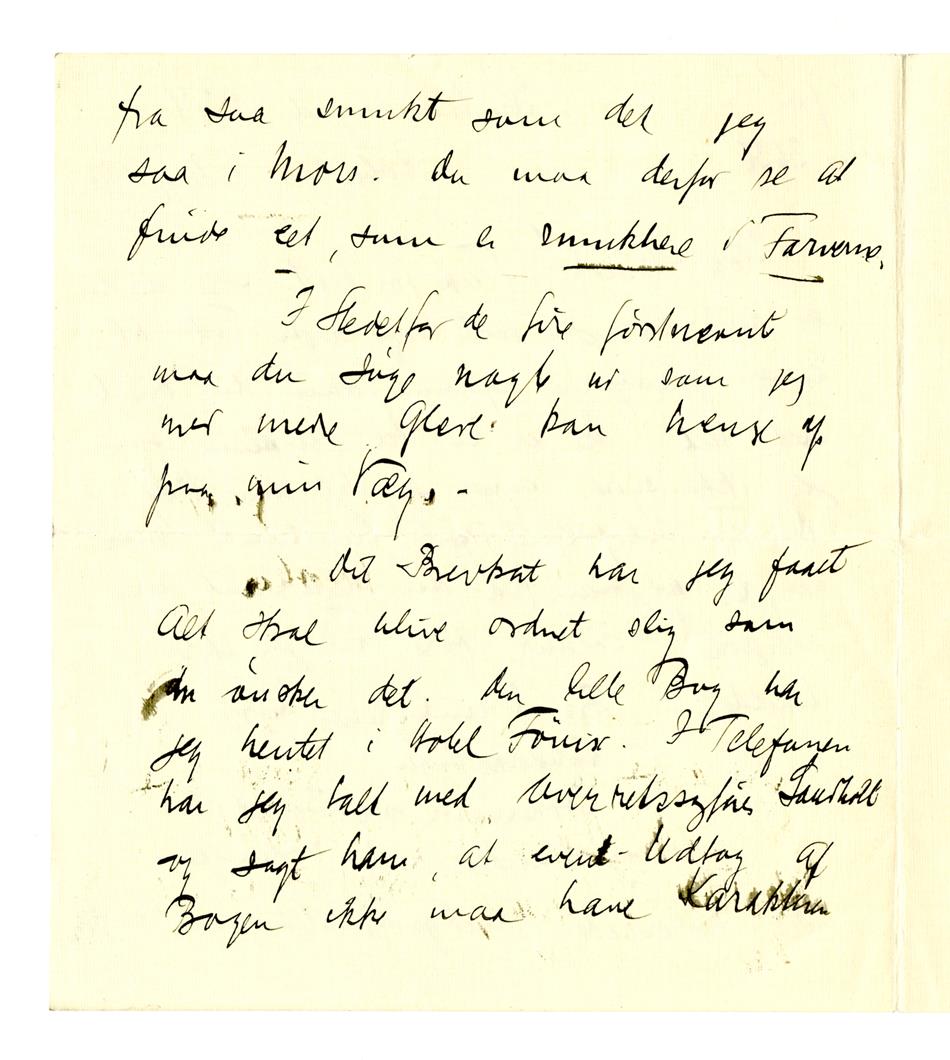 fra saa smukt som det jeg
saa i Mors. Du maa derfor se at
finde eet, som er smukkere i Farverne.
I Stedetfor de fire førstnævnte
maa du søge nogle ud som jeg
med mere Glæde kan hænge op
paa min Væg. -
Dit Brevkort har jeg faaet
Alt skal blive ordnet slig som
du ønsker det. Den lille Bog har
jeg hentet i Hotel Fönix. I Telefonen
har jeg talt med Overretssagfører Sandholt
og sagt ham, at event. Udtog af
Bogen ikke maa have Karakteren